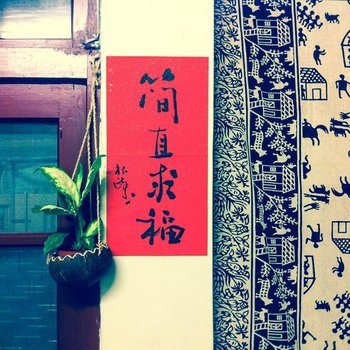 简直求福